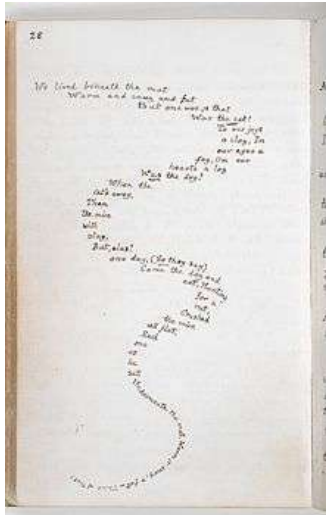 28
We lived beneath the mat
Warm and snug and fat
But one woe, & that
Was the cat!
To our joys
a clog, In
our eyes a
fog, On our
hearts a log
Was the dog!
When the
cat's away,
Then
the mice
will
play,
But, alas!
one day, (So they say)
Came the dog and
cat, Hunting
for a
rat,
Crushed
the mice
all flat,
Each
one
as
he
sat
Underneath the mat, Warm, & snug, & fat – Think of that!